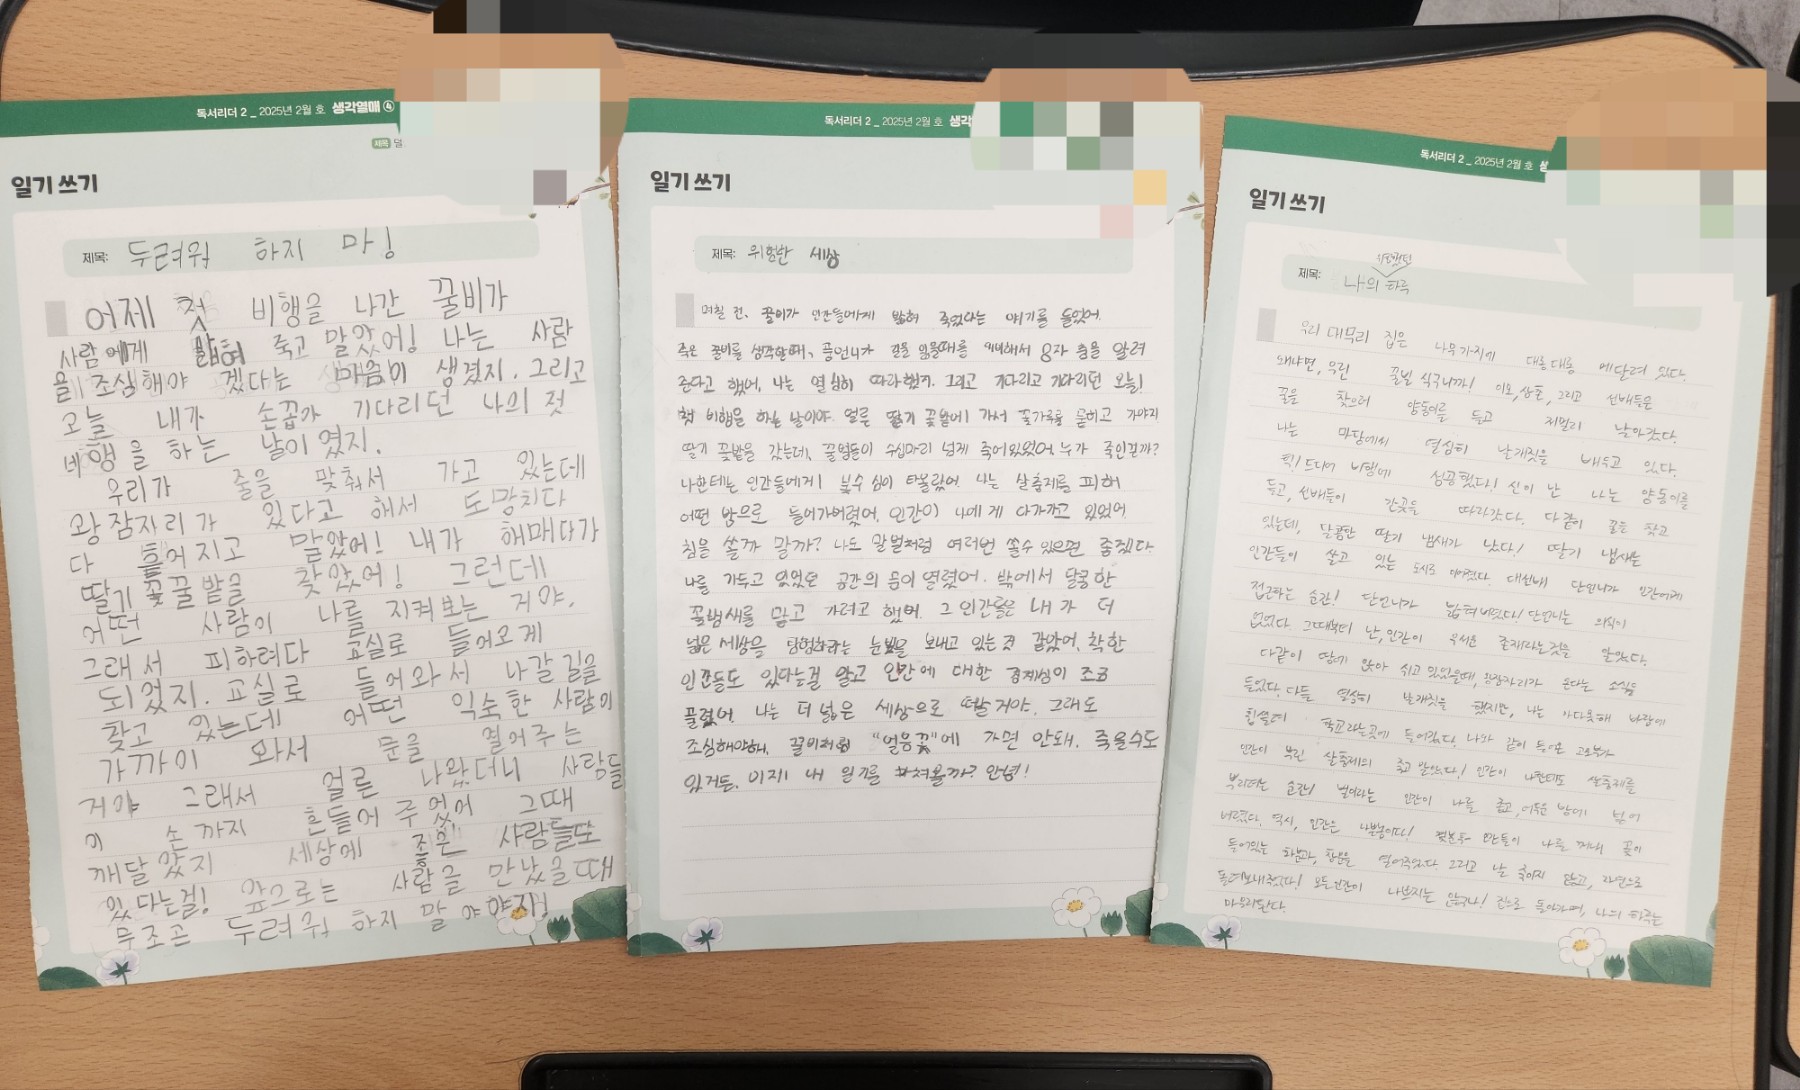 독서리더 2 _ 2025년 2월 호 생각열매 ④
제목 덜
일기 쓰기
제목: 두려워 하지 마!
어제 첫 비행을 나간 꿀비가
사람에게 밟혀 죽고 말았어! 나는 사람
을 조심해야 겠다는 마음이 생겼지. 그리고
오늘 내가 손꼽아 기다리던 나의 첫
비행을 하는 날이 였지.
우리가 줄을 맞춰서 가고 있는데
왕잠자리가 있다고 해서 도망치다
다 흩어지고 말았어! 내가 헤매다가
딸기 꽃꿀밭을 찾았어! 그런데
어떤 사람이 나를 지켜보는 거야.
그래서 피하려다 교실로 들어오게
되었지. 교실로 들어와서 나갈 길을
찾고 있는데 어떤 익숙한 사람이
가까이 와서 문을 열어주는
거야 그래서 얼른 나왔더니 사람들
이 손까지 흔들어 주었어 그때
깨달았지 세상에 좋은 사람들도
있다는걸! 앞으로는 사람을 만났을때
무조곤 두려워 하지 말아야지!
독서리더 2 _ 2025년 2월 호 생각
일기 쓰기
제목: 위험한 세상
며칠 전, 꿀비가 인간들에게 밟혀 죽었다는 얘기를 들었어.
죽은 꿀비를 생각할때, 공언니가 길을 잃을때를 위해서 8자 춤을 알려
준다고 했어, 나는 열심히 따라했지. 그리고 기다리고 기다리던 오늘!
첫 비행을 하는 날이야. 얼른 딸기 꽃밭에 가서 꽃가루를 묻히고 가야지
딸기 꽃밭을 갔는데, 꿀벌들이 수십마리 넘게 죽어있었어. 누가 죽인걸까?
나한테는 인간들에게 복수심이 타올랐어. 나는 살충제를 피해
어떤 방으로 들어가버렸어. 인간이 나에게 다가가고 있었어.
침을 쏠까 말까? 나도 말벌처럼 여러번 쏠수 있으면 좋겠다.
나를 가두고 있었던 공간의 문이 열렸어. 밖에서 달콤한
꽃냄새를 맡고 가려고 했어. 그 인간들은 내가 더
넓은 세상을 탐험하라는 눈빛을 보내고 있는 것 같았어. 착한
인간들도 있다는걸 알고 인간에 대한 경계심이 조금
풀렸어. 나는 더 넓은 세상으로 떠날거야. 그래도
조심해야해. 꿀비처럼 "얼음꽃"에 가면 안돼. 죽을수도
있거든. 이제 내 일기를 마쳐볼까? 안녕!
독서리더 2 _ 2025년 2월 호
일기 쓰기
제목: 나의 하루
우리 대무리 집은 나무가지에 대롱대롱 매달려 있다.
왜냐면, 우린 꿀벌 식구니까! 이모, 삼촌, 그리고 선배들은
꿀을 찾으러 양동이를 들고 저멀리 날아갔다.
나는 마당에서 열심히 날개짓을 배우고 있다.
헉! 드디어 비행에 성공했다! 신이 난 나는 양동이를
들고, 선배들이 간곳을 따라갔다. 다같이 꿀을 찾고
있는데, 달콤한 딸기 냄새가 났다! 딸기 냄새는
인간들이 살고 있는 도시로 이어졌다. 대신해 단언니가 인간에게
접근하는 순간! 단언니가 밟혀버렸다! 단언니는 의식이
없었다. 그때부터 난, 인간이 무서운 존재라는것을 알았다.
다같이 땅에 앉아 쉬고 있었을때, 왕잠자리가 온다는 소식을
들었다. 다들 열심히 날개짓을 했지만, 나는 가다못해 바람에
휩쓸려 학교라는곳에 들어갔다. 나와 같이 들어온
인간이 뿌린 살충제의 죽고 말았다! 인간이 나한테도 살충제를
뿌리려는 순간! 벌이라는 인간이 나를 잡고, 어두운 방에 넣어
버렸다. 역시, 인간은 나쁜놈이다! 몇분후 인간들이 나를 꺼내 꽃이
들어있는 화분과, 창문을 열어주었다. 그리고 날 죽이지 않고, 자연으로
돌려보내주었다! 모든 인간이 나쁘지는 않구나! 집으로 돌아가며, 나의 하루는
마무리된다.